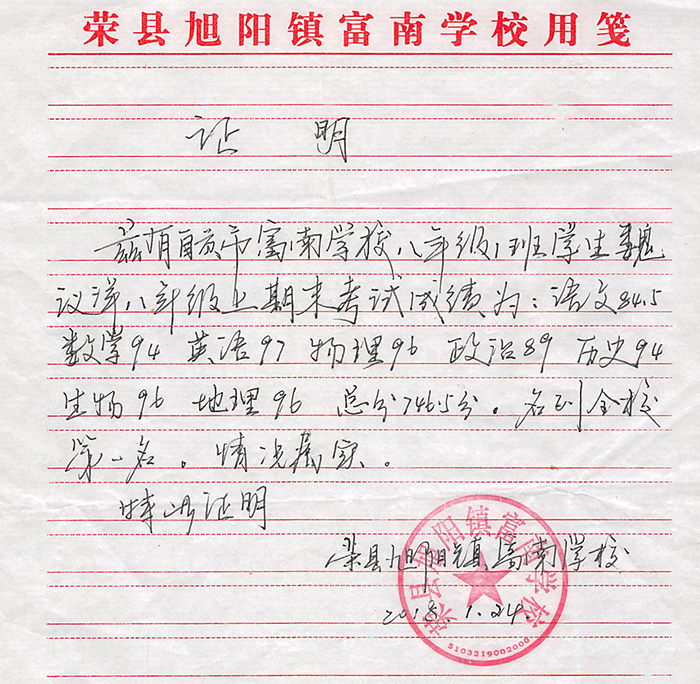 荣县旭阳镇富南学校用笺
证 明
兹有自贡市富南学校八年级1班学生魏
议洋八年级上期末考试成绩为：语文84.5
数学94 英语97 物理96 政治89 历史94
生物96 地理96 总分746.5分。名列全校
第一名。情况属实。
特此证明
荣县旭阳镇富南学校
2018.1.24.
荣县旭阳镇富南学校
5103219002000